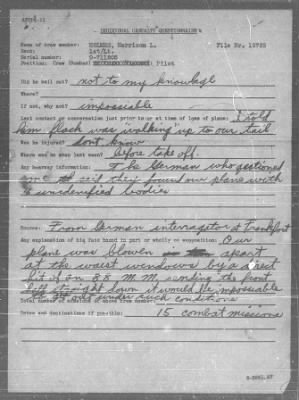 INDIVIDUAL CASUALTY QUESTIONNAIRE
Name of crew member: Harrison L. File Nr. 10725
Rank: 1st/Lt.
Serial number: O-711805
Position: Crew (Bomber) Pilot
Did he bail out? not to my knowledge
Where?
If not, why not? impossiable
Last contact or conversation just prior to or at time of loss of plane: I told
him flack was "walking" up to our tail
Was he injured? don't know
Where was he when last seen? before take off.
Any hearsay information: The German who qestioned
me said they found our plane with
unidenefied bodies
Source: From German interragator at Frankfort
Any explanation of his fate based in part or wholly on supposition: Our
plane was blowen apart
at the waist windows by a direct
hit of an 88 M.M. sending the front
half straight down it would be impossiable
to get out under such conditions
Total number of missions of above crew member:
15 combat missions
Dates and destinations if possible: